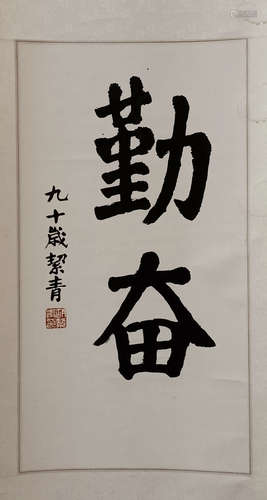 勤奋
九十歲絜青